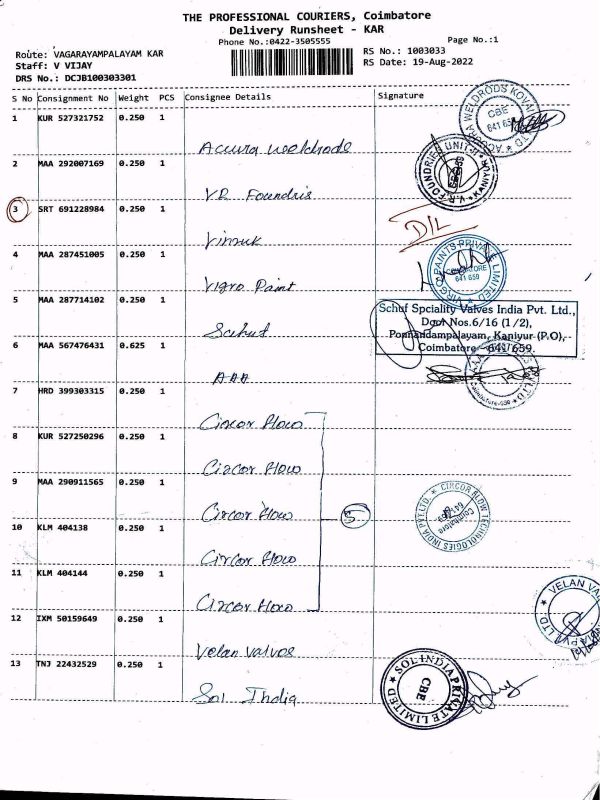 THE PROFESSIONAL COURIERS, Coimbatore
Delivery Runsheet - KAR
Phone No.:0422-3505555
Page No.:1
Route: VAGARAYAMPALAYAM KAR
RS No.: 1003033
Staff: V VIJAY
RS Date: 19-Aug-2022
DRS No.: DCJB100303301
S No Consignment No Weight PCS Consignee Details Signature
1 KUR 527321752 0.250 1
Accura weldrods
WELDRODS KOVAI
CBE
641 659
2 MAA 292007169 0.250 1
V.R Foundris
V.R.FOUNDRIES UNIT-II
3 SRT 691228984 0.250 1
D/L
4 MAA 287451005 0.250 1
Vigro Paint
VIRGO PAINTS PRIVATE LIMITED
COIMBATORE
641 659
5 MAA 287714102 0.250 1
Schuf
Schuf Spciality Valves India Pvt. Ltd.,
Door Nos.6/16 (1/2),
Ponnandampalayam, Kaniyur (P.O),
Coimbatore - 641 659.
6 MAA 567476431 0.625 1
AAA
7 HRD 399303315 0.250 1
Circor Flow
8 KUR 527250296 0.250 1
Circor Flow
9 MAA 290911565 0.250 1
Circor Flow
5
CIRCOR FLOW TECHNOLOGIES INDIA PVT. LTD.
Coimbatore
10 KLM 404138 0.250 1
Circor Flow
11 KLM 404144 0.250 1
Circor Flow
12 IXM 50159649 0.250 1
Velan Valves
VELAN VALVES
13 TNJ 22432529 0.250 1
Sol India
SOL INDIA PRIVATE LIMITED
CBE